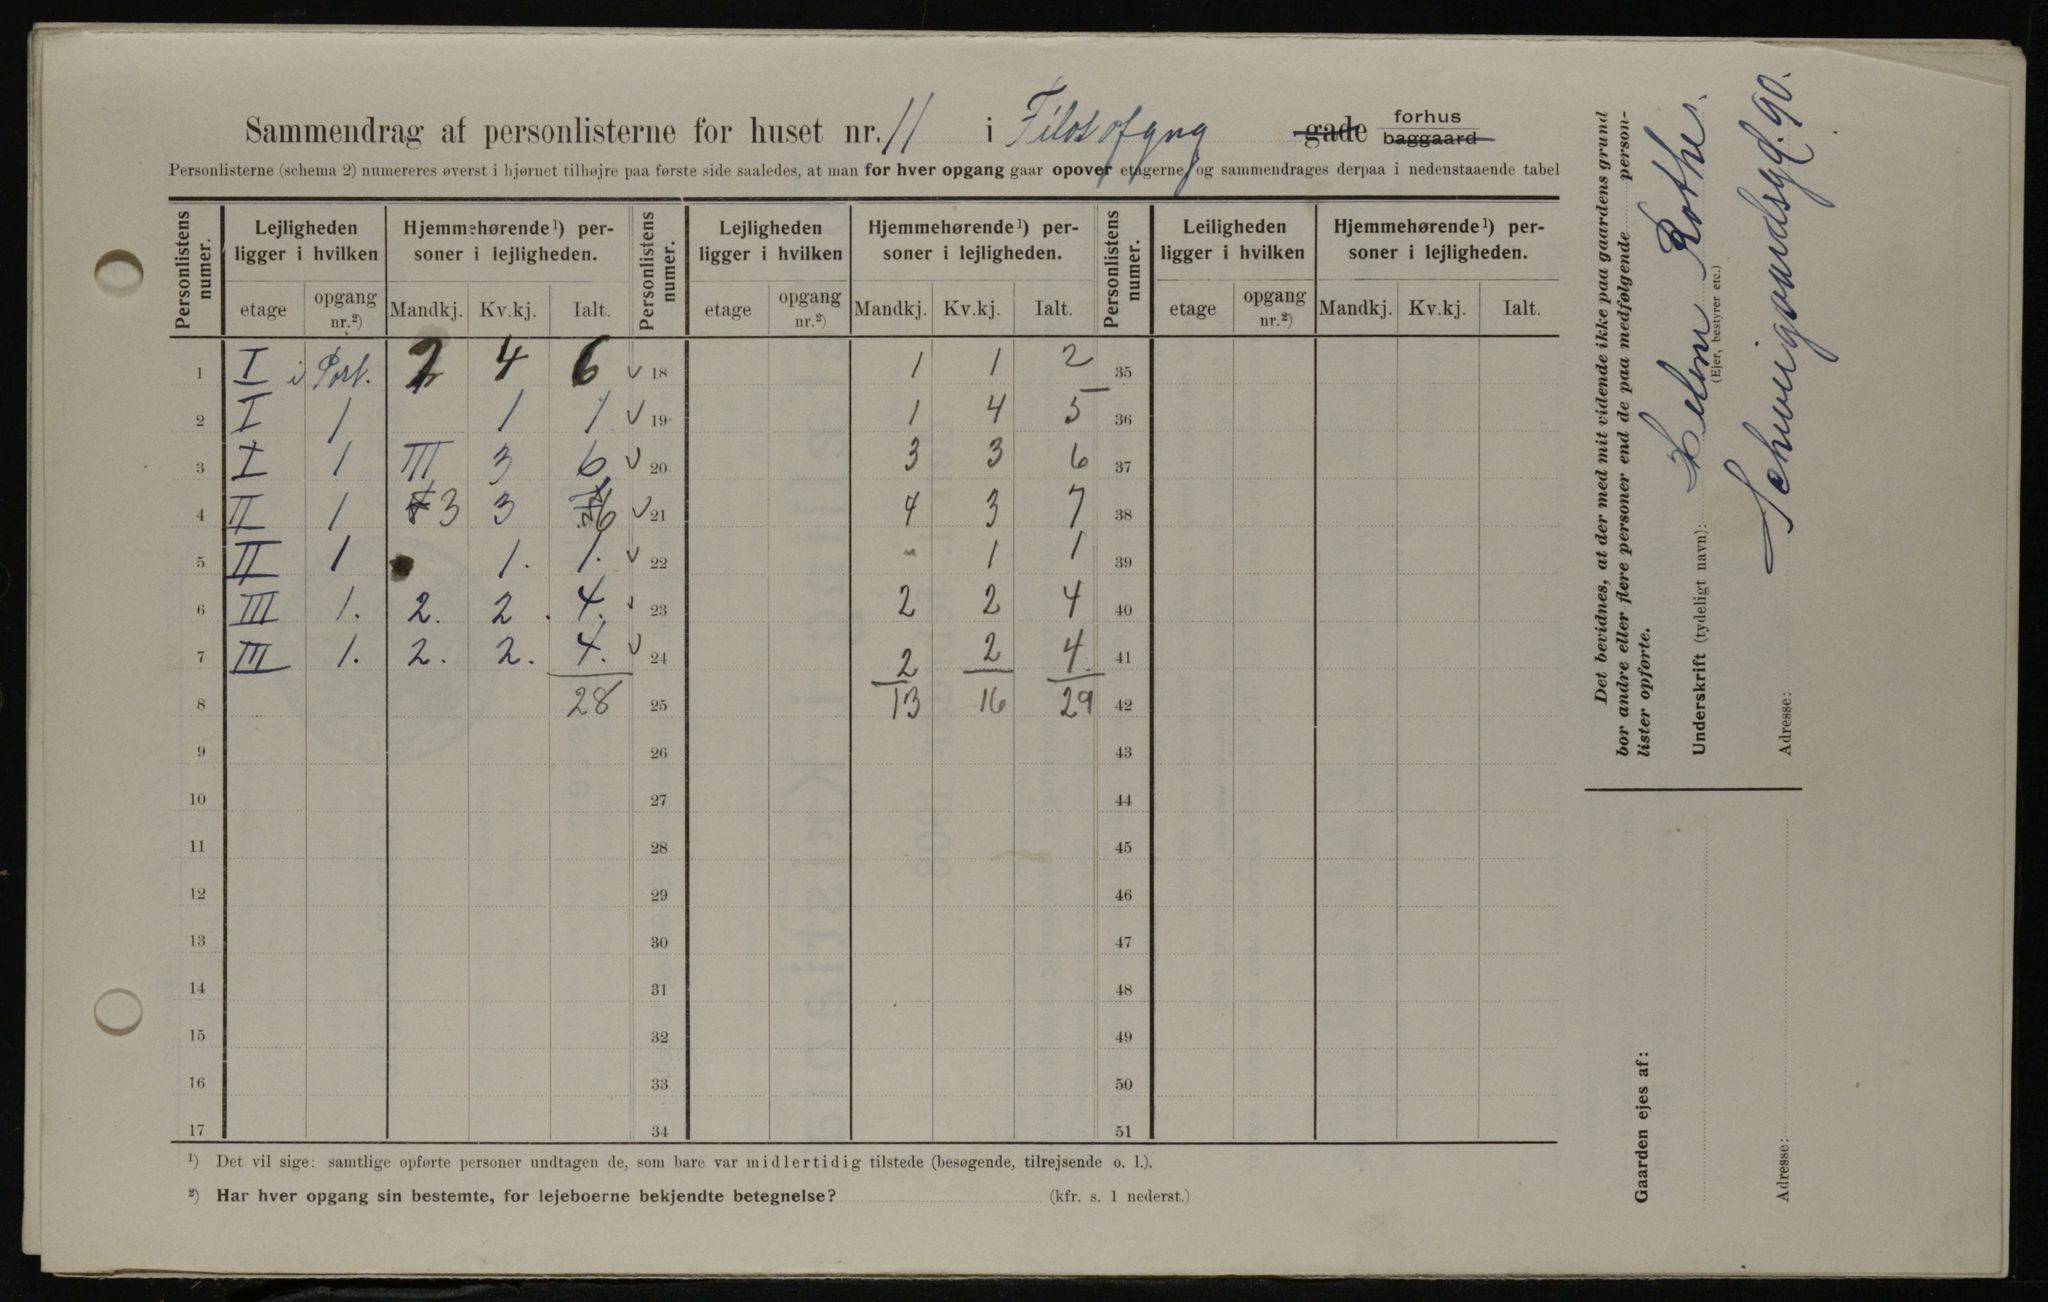 Sammendrag af personlisterne for huset nr. 11 i Filosofgng gade forhus baggaard
Personlisterne (schema 2) numereres øverst i hjørnet tilhøjre paa første side saaledes, at man for hver opgang gaar opover etagerne, og sammendrages derpaa i nedenstaaende tabel
Personlistens numer. Lejligheden ligger i hvilken Hjemmehørende¹) personer i lejligheden. Personlistens numer. Lejligheden ligger i hvilken Hjemmehørende¹) personer i lejligheden. Personlistens numer. Leiligheden ligger i hvilken Hjemmehørende¹) personer i lejligheden.
etage opgang nr.²) Mandkj. Kv.kj. Ialt. etage opgang nr.²) Mandkj. Kv.kj. Ialt. etage opgang nr.²) Mandkj. Kv.kj. Ialt.
1 I i Port. 2 4 6 18 1 1 2 35
2 I 1 1 1 19 1 4 5 36
3 I 1 III 3 6 20 3 3 6 37
4 II 1 3 3 6 21 4 3 7 38
5 II 1 1. 1. 22 - 1 1 39
6 III 1. 2. 2. 4. 23 2 2 4 40
7 III 1. 2. 2. 4. 24 2 2 4 41
8 28 25 13 16 29 42
9 26 43
10 27 44
11 28 45
12 29 46
13 30 47
14 31 48
15 32 49
16 33 50
17 34 51
¹) Det vil sige: samtlige opførte personer undtagen de, som bare var midlertidig tilstede (besøgende, tilrejsende o. l.).
²) Har hver opgang sin bestemte, for lejeboerne bekjendte betegnelse? (kfr. s. 1 nederst.)
Det bevidnes, at der med mit vidende ikke paa gaardens grund
bor andre eller flere personer end de paa medfølgende person-
lister opførte.
Underskrift (tydeligt navn): Rothe.
(Ejer, bestyrer etc.)
Schweigaardsgd. 90.
Adresse:
Gaarden ejes af:
Adresse: